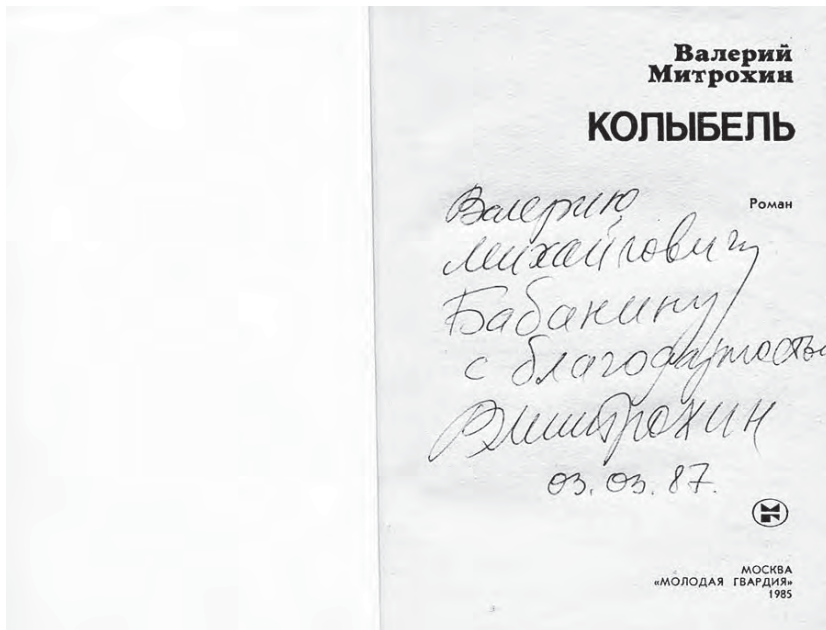 Валерий
Митрохин
КОЛЫБЕЛЬ
Роман
Валерию
Михайловичу
Бабанину
с благодарностью
ВМитрохин
03.03.87.
МОСКВА
«МОЛОДАЯ ГВАРДИЯ»
1985